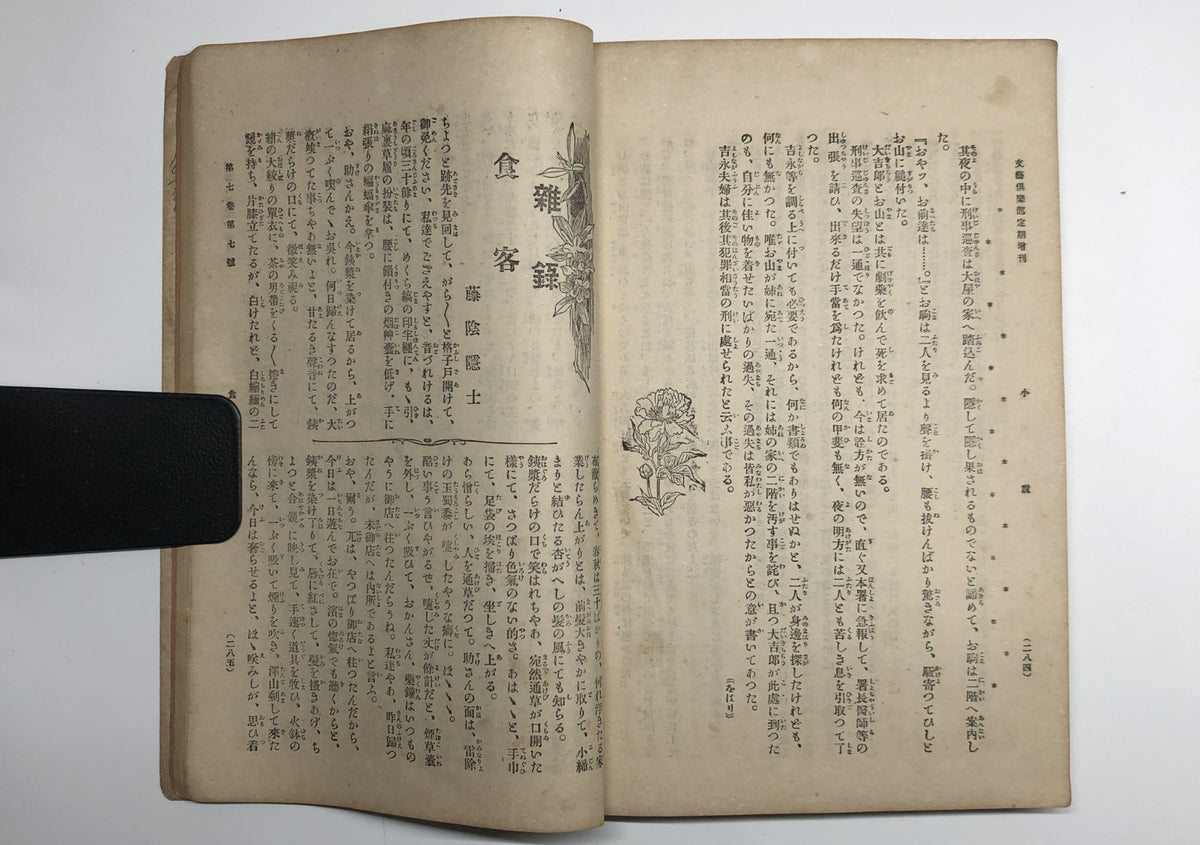 文藝倶樂部定期増刊
小說
(二八四)
た。
其夜の中に刑事巡査は大屋の家へ踏込んだ。隱して隱し果されるものでないと諦めて、お駒は二階へ案內し
『おやッ、お前達は……。』とお駒は二人を見るより聲を掛け、腰も拔けんばかり驚きながら、駈寄つてひしと
お山に縋付いた。
大吉郎とお山とは共に劇藥を飮んで死を求めて居たのである。
刑事巡査の失望は一通でなかつた。けれども、今は詮方が無いので、直ぐ又本署に急報して、署長醫師等の
出張を請ひ、出來るだけ手當を爲たけれども何の甲斐も無く、夜の明方には二人とも苦しき息を引取つて了
つた。
吉永等を調る上に付いても必要であるから、何か書類でもありはせぬかと、二人が身邊を探したけれども、
何にも無かつた。唯お山が姉に宛た一通、それには姉の家の二階を汚す事を詫び、且つ大吉郎が此處に到つた
のも、自分に佳い物を着せたいばかりの過失、その過失は皆私が惡かつたからとの意が書いてあつた。
吉永夫婦は其後其犯罪相當の刑に處せられたと云ふ事である。
(をはり)
雜錄
食客
藤陰隱士
ちよつと跡先を見回して、がら〳〵と格子戶開けて、
御免ください、私達でござえやすと、音づれけるは、
年の頃二十餘りにて、めくら縞の印半纏に、もゝ引、
麻裏草履の扮裝は、腰に鎖付きの烟艸囊を低げ、手に
絹張りの蝙蝠傘を拿つ。
おや、助さんかえ。今鐵漿を染けて居るから、上がつ
て一ぷく喫んでゝお吳れ。何日歸んなすつたのだ、大
漿だらけの口にて、微笑み視る。
緋の大絞りの單衣に、茶の男帶をくる〳〵捲きにして
を持ち、片膝立てたるが、白けたれど、白縮緬の二
業したらん上がりとは、前髮大きやかに取りて、小締
まりと結ひたる杏がへしの髮の風にても知らる。
鐵漿だらけの口で笑はれちやあ、宛然通草が口開いた
樣にて、さつぱり色氣のない的さ。あはゝゝと、手巾
にて、足袋の埃を掃き、坐しきへ上がる。
あら憎らしい、人を通草だつて。助さんの面は、雷除
けの玉蜀黍が嚏したやうな癖に。ほゝゝゝ。
酷い事う言ひやがるぜ、嚏した丈が餘計だと、煙草囊
を外し、一ぷく吸ひて、おかんさん、藥鑵はいつもの
やうに御店へ往つたんだらうね。私達やあ、昨日歸つ
たんだが、未御店へは內所であるよと言ふ。
おや、爾う。兀は、やつぱり御店へ往つたんだから、
今日は一日遊んでお在で。濱の惚氣でも聽くからと、
鐵漿を染け了りて、唇に紅さして、髮を搔きあげ、ち
よつと合鏡に映し見て、手速く道具を收ひ、火鉢の
傍に來て、一ぷく吸いて煙りを吹き、深山剩して來た
んなら、今日は奢らせるよと、ほゝ咲みしが、思ひ着
第七卷第七號
(二八五)